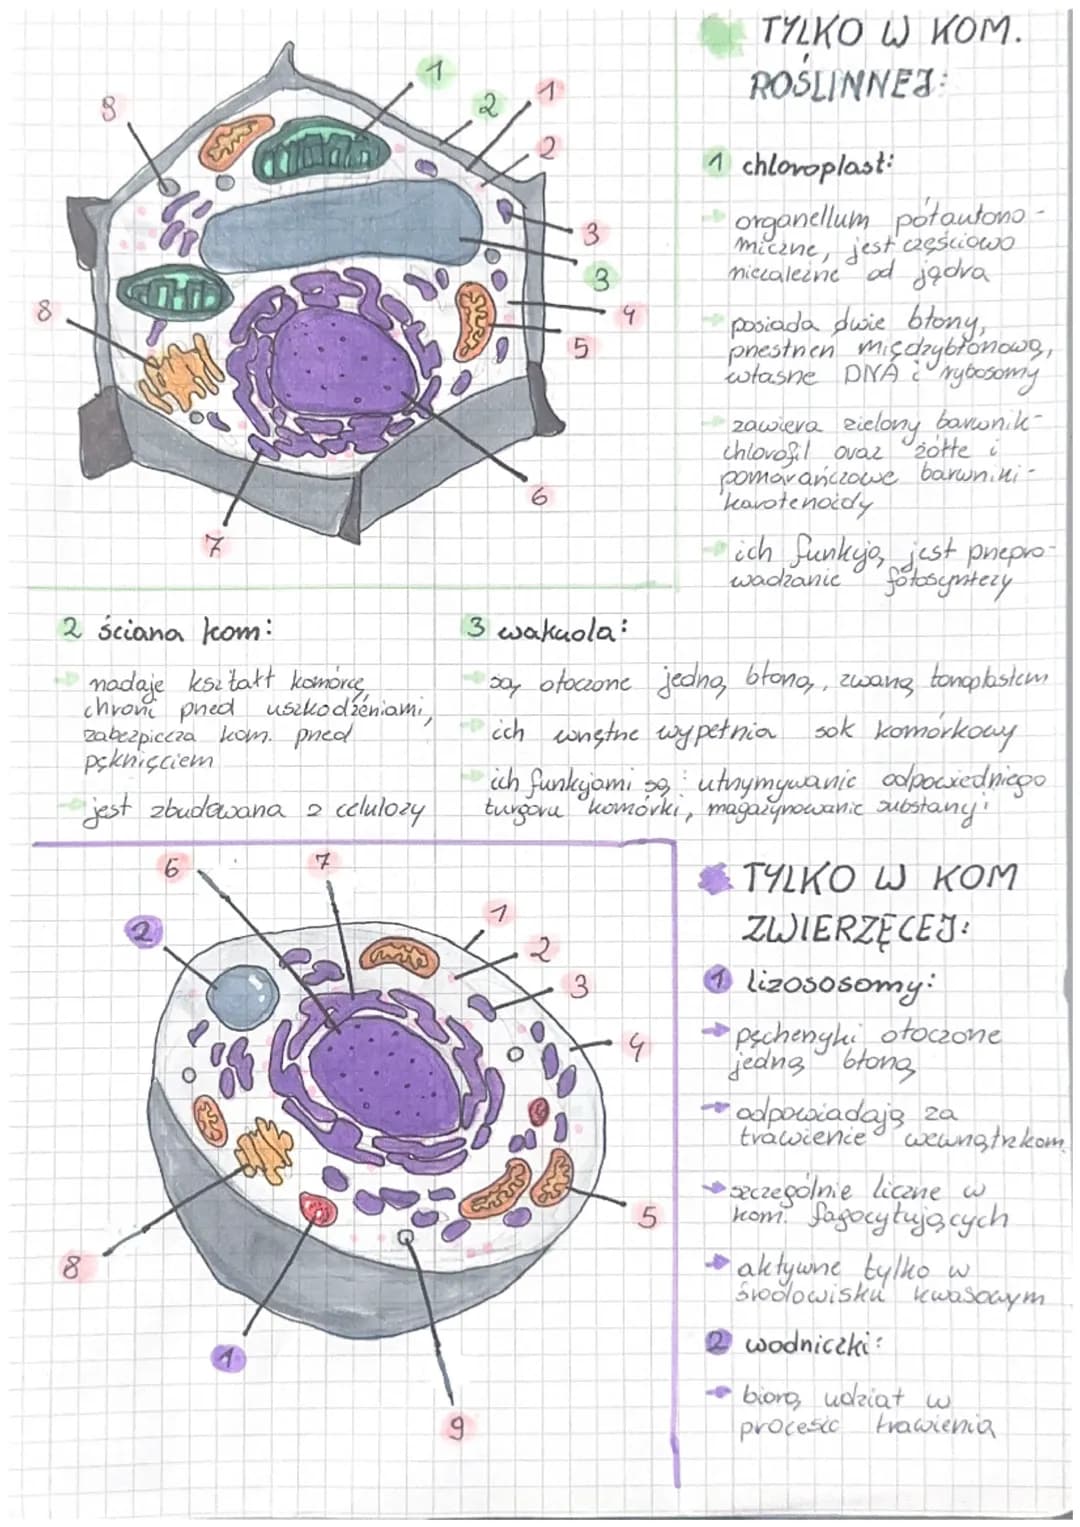 TYLKO W KOM.
ROŚLINNEJ:
1
2
1
2
9
3
3
4
5
8
6
7
1 chloroplast:
organellum półautono-
miczne, jest częściowo
niezależne od jądra
posiada dwie błony,
przestrzeń międzybłonową,
własne DNA i rybosomy
zawiera zielony barwnik-
chlorofil oraz żółte i
pomarańczowe barwniki-
karotenoidy
ich funkcją jest przepro-
wadzanie fotosyntezy
2 ściana kom:
nadaje kształt komórce,
chroni przed uszkodzeniami,
zabezpiecza kom. przed
pęknięciem
jest zbudowana z celulozy
3 wakuola:
są otoczone jedną błoną, zwaną tonoplastem
ich wnętrze wypełnia sok komórkowy
ich funkcjami są: utrzymywanie odpowiedniego
turgoru komórki, magazynowanie substancji
6
7
1
2
2
3
4
5
8
1
9
TYLKO W KOM
ZWIERZĘCEJ:
1 lizososomy:
pęcherzyki otoczone
jedną błoną
odpowiadają za
trawienie wewnątrzkom.
szczególnie liczne w
kom. fagocytujących
aktywne tylko w
środowisku kwasowym
2 wodniczki:
biorą udział w
procesie trawienia